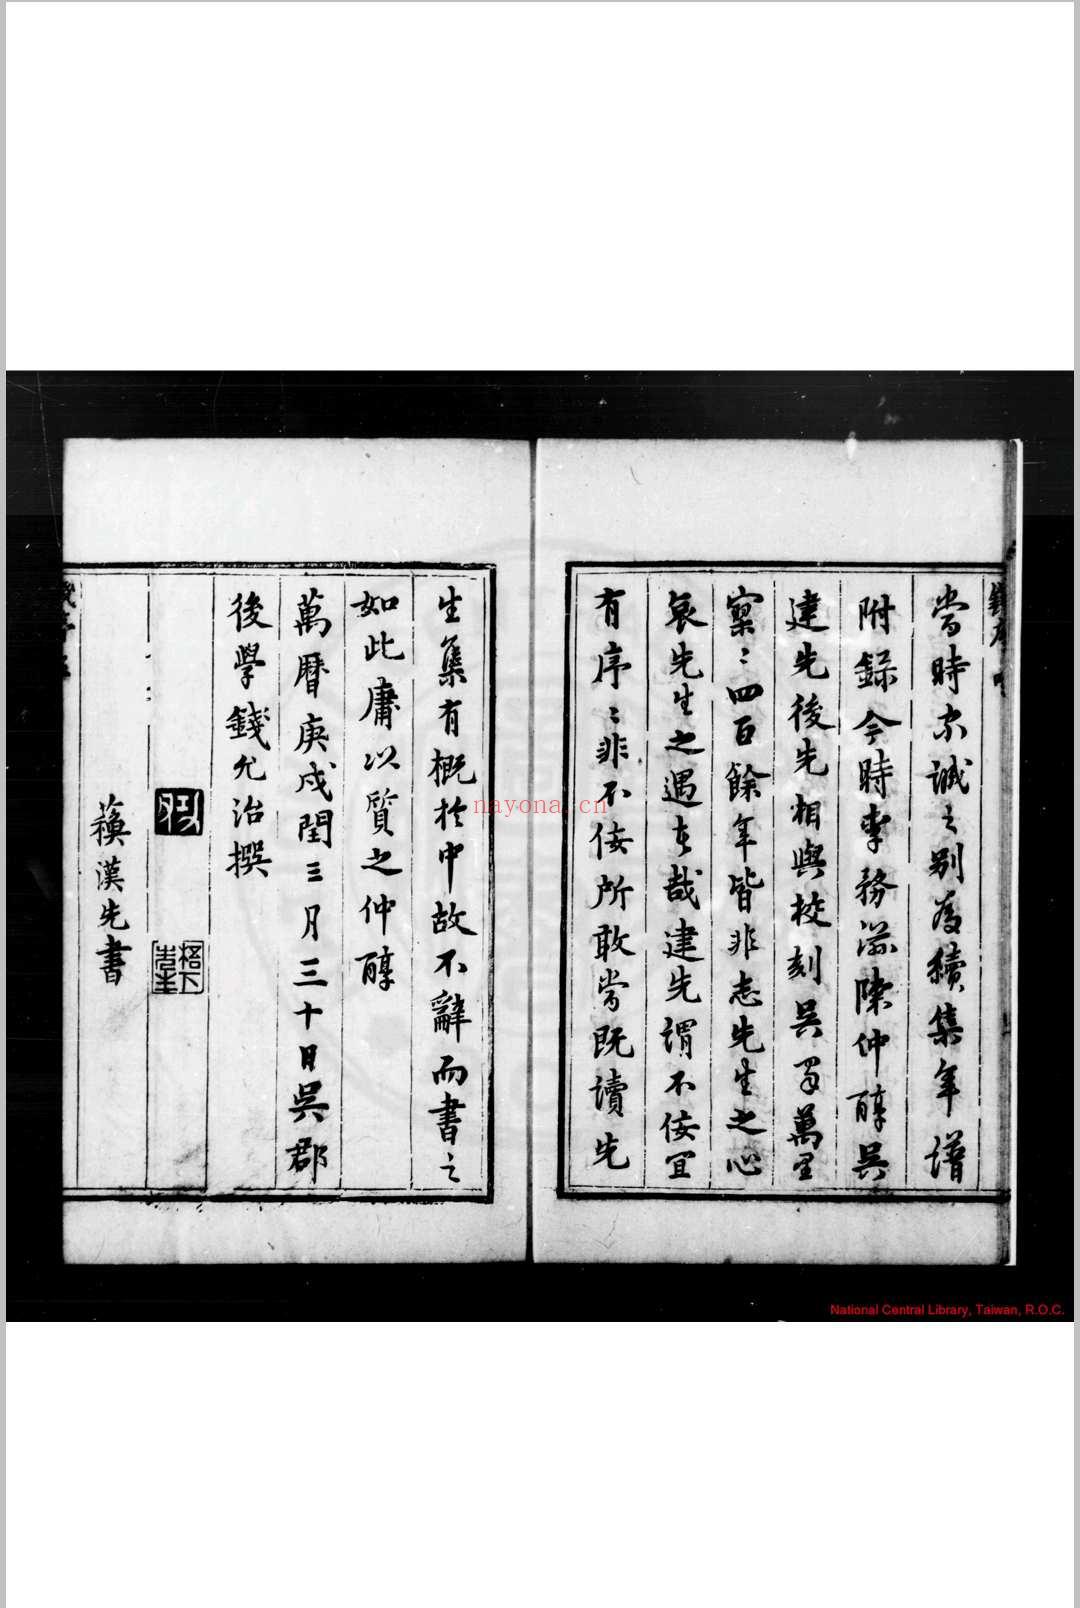 嘗時宗誠之別為續集年譜
附錄今時李務滋陳仲醇吳
建先後先相與校刻吳蜀萬里
寥〻四百餘年皆非志先生之心
哀先生之遇者哉建先謂不佞宜
有序〻非不佞所敢嘗既讀先
生集有概於中故不辭而書之
如此庸以質之仲醇
萬曆庚戌閏三月三十日吳郡
後學錢允治撰
漢先書
nayona.cn
National Central Library, Taiwan, R.O.C.